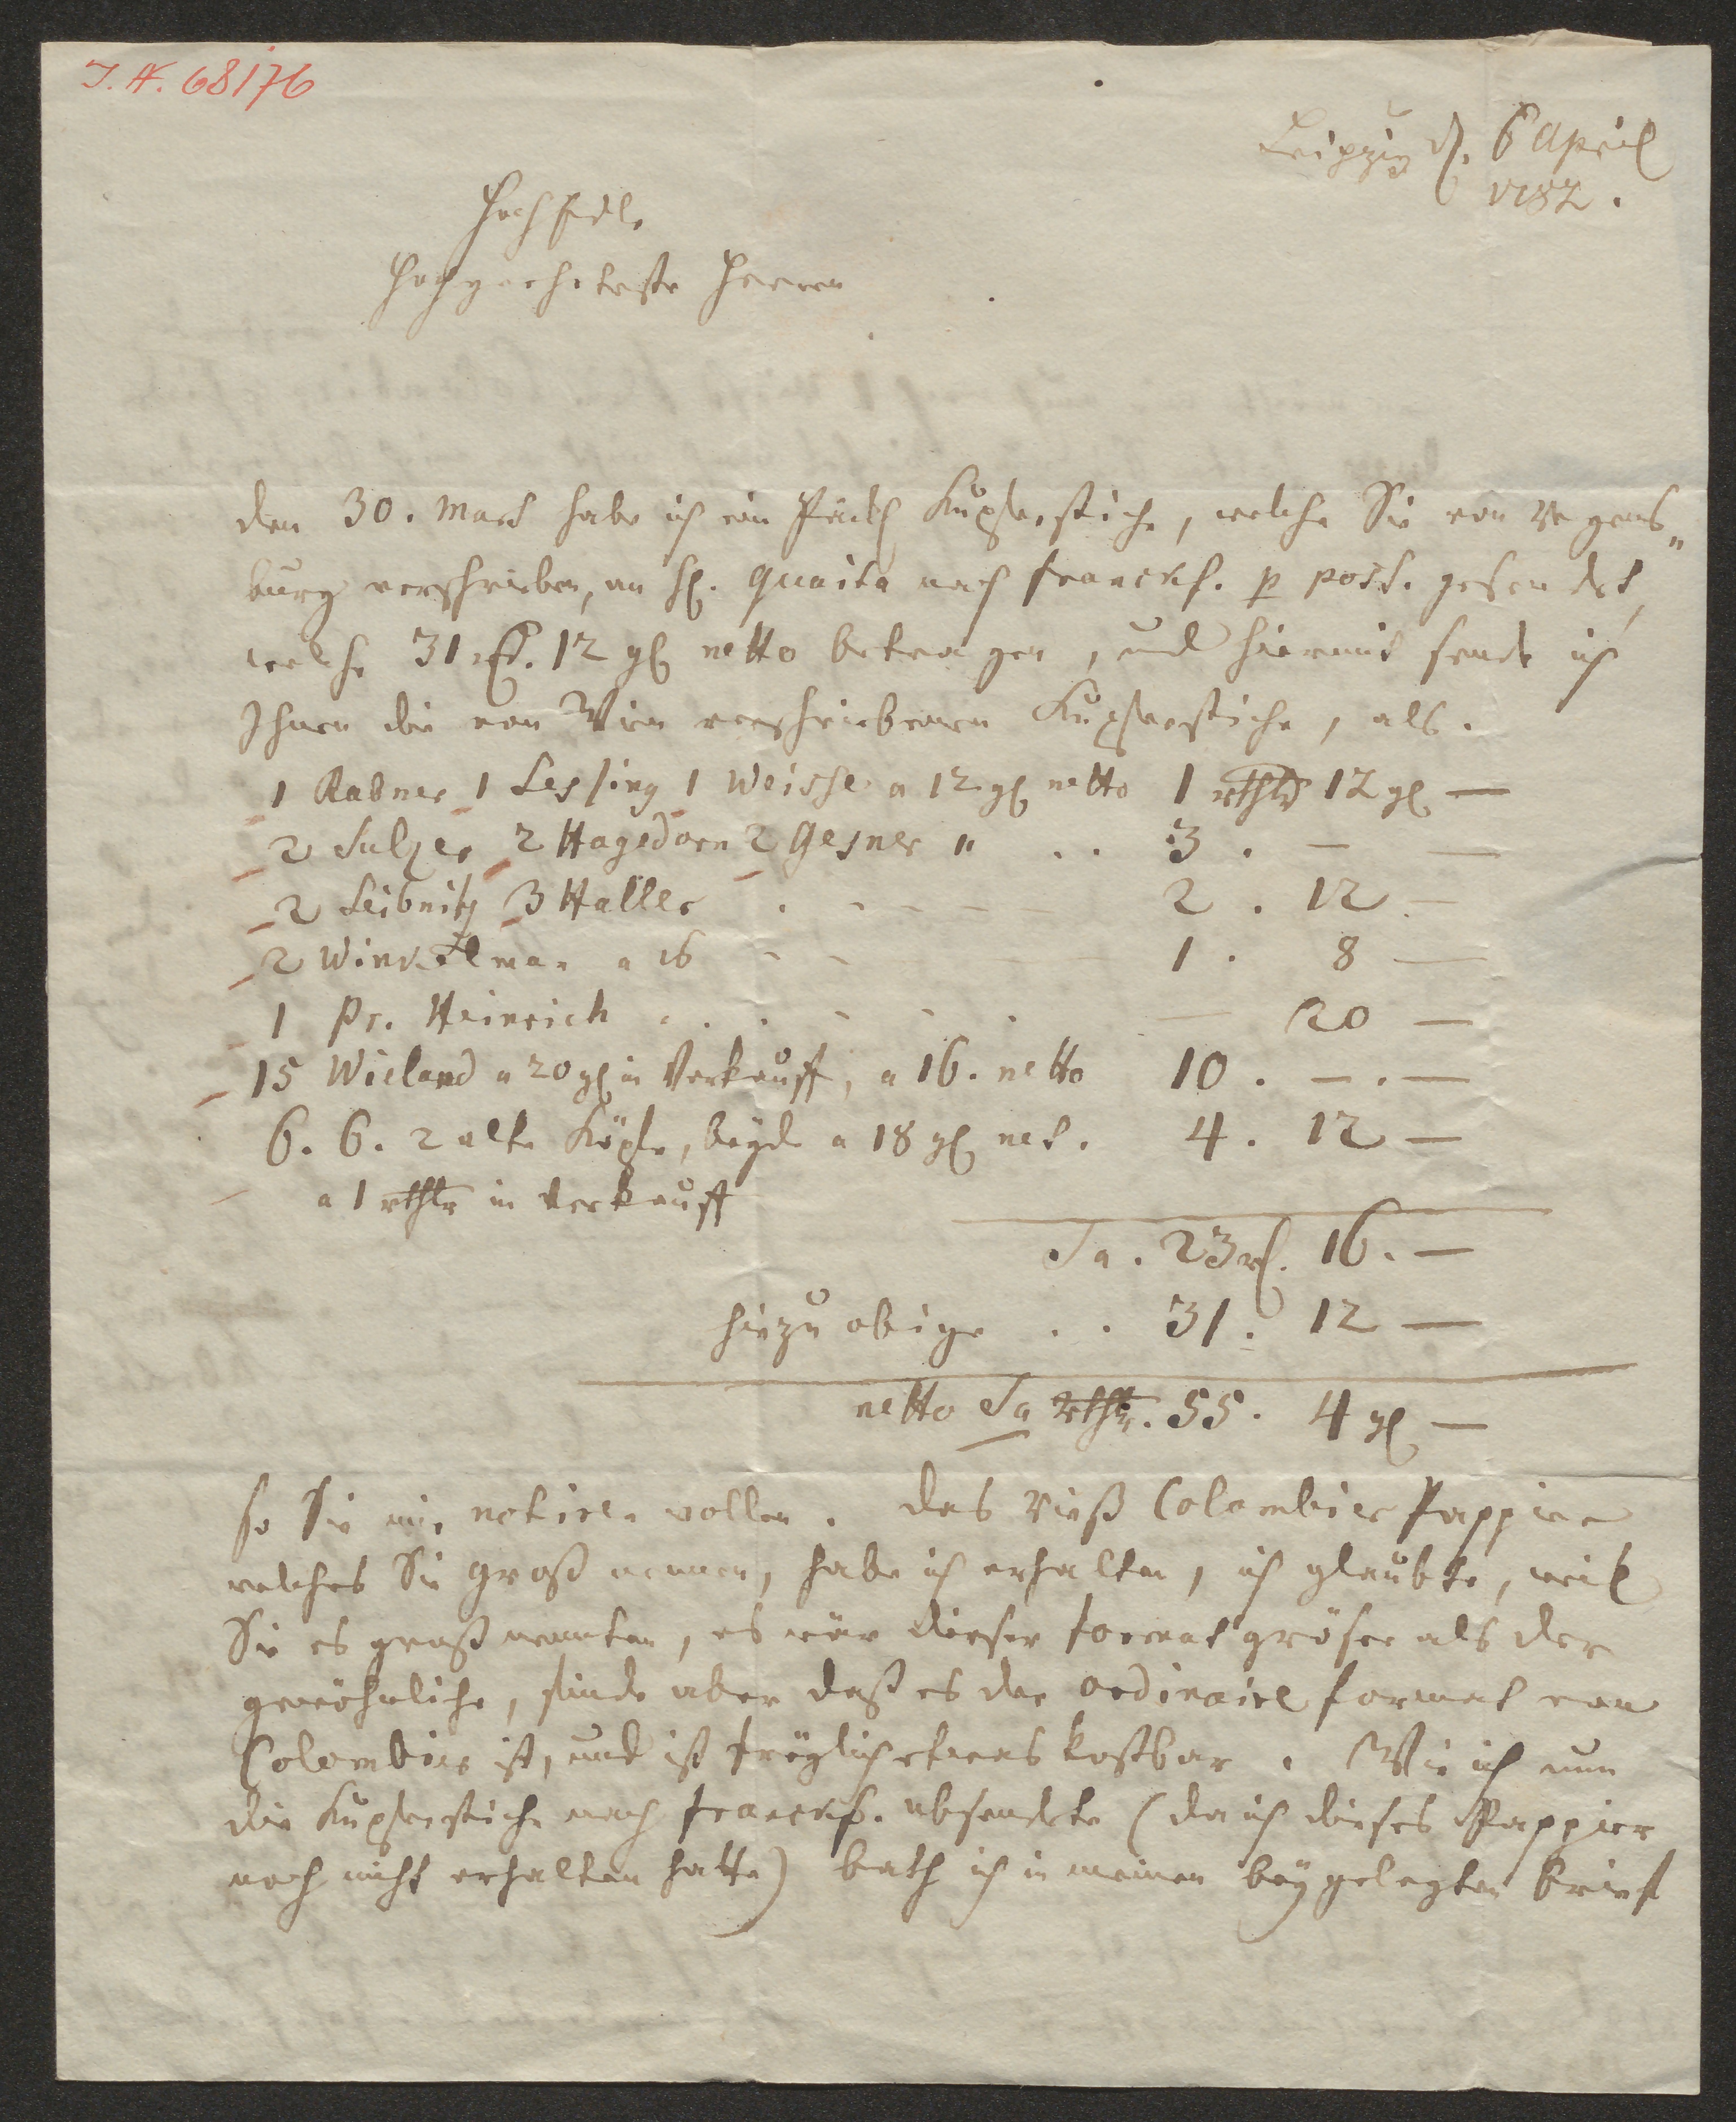 I. N. 68176
Leipzig d. 6 April
1782.
HochEdle
Hochgeehrteste Herren
den 30. Mart habe ich ein Päckch Kupferstiche, welche Sie von Regens„
burg verschrieben, an H. Quaita nach franckf. p post. gesendet,
welche 31 rth. 12 gl netto betragen, und hiermit sende ich
Ihnen die von Wien verschriebenen Kupferstiche, als.
1 Rabner 1 Lessing 1 Weisse a 12 gl netto 1 rthlr 12 gl —
2 Sulzer 2 Hagedorn 2 Gesner " . . 3 . — —
2 Leibnitz 3 Haller . - - - - 2 . 12 —
2 Winckelman a 16 - - — 1 . 8 —
1 Pr. Heinrich . . . - . . — 20 —
15 Wieland a 20 gl in Verkauff, a 16. netto 10 . — . —
6. 6. 2 alte Köpfe, beyde a 18 gl net. 4 . 12 —
a 1 rthlr in verkauff
Sa. 23 rl. 16. —
hiezu obige . . 31. 12 —
netto Sa rthlr. 55. 4 gl —
so Sie mir notiren wollen. Das Rieß Colombier Pappier
welches Sie groß nennen, habe ich erhalten, ich glaubte, weil
Sie es groß nennten, es wär dieser format gröser als der
gewöhnliche, finde aber daß es der ordinaire format von
Colombier ist, und ist folglich etwas kostbar. Wie ich nun
die Kupferstiche nach franckf. absendete (da ich dieses Pappier
noch nicht erhalten hatte) bath ich in meinen beygelegten brief